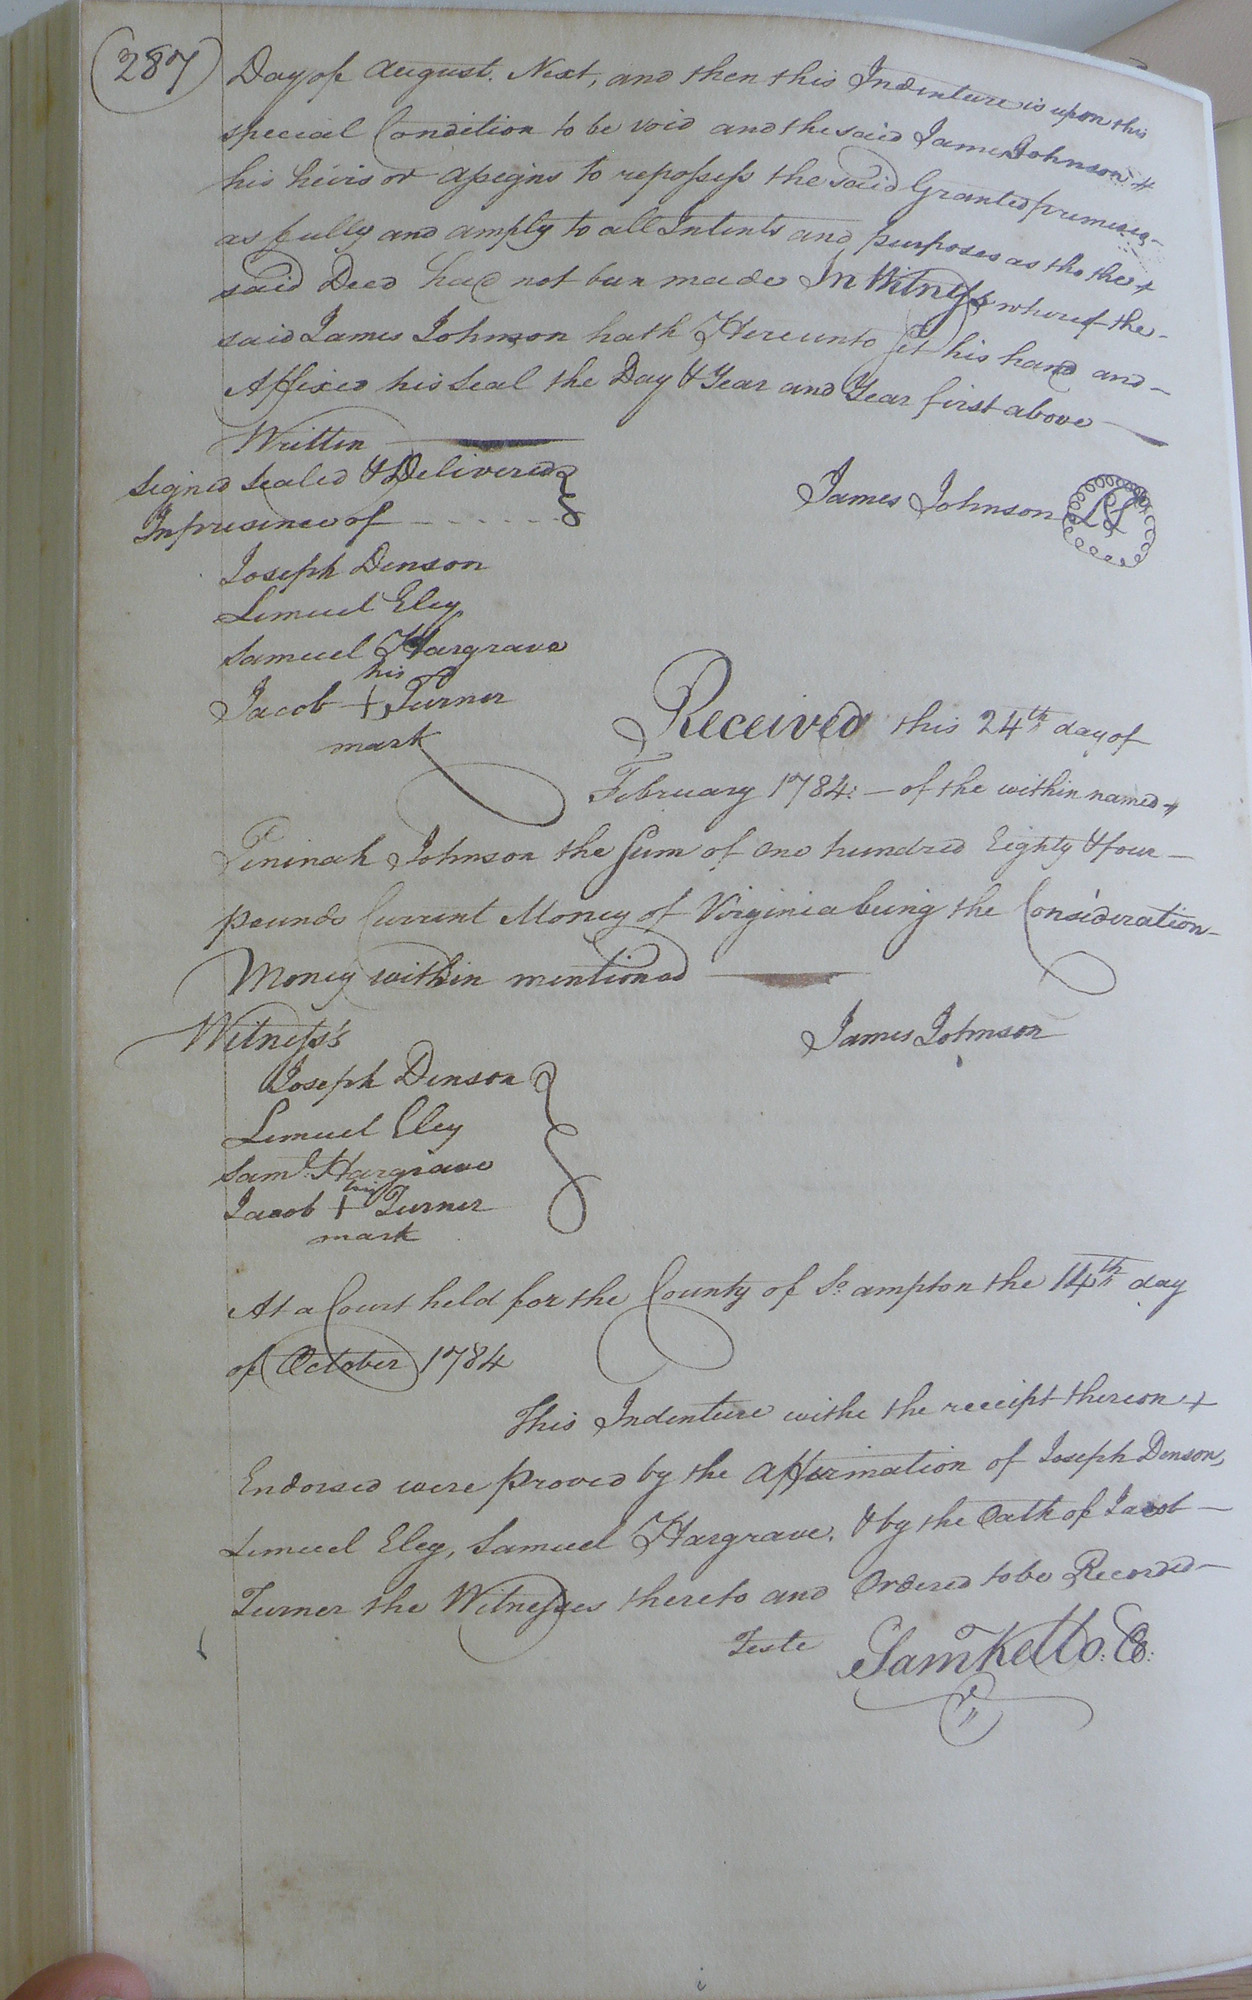 287
Day of August. Next, and then this Indenture is upon this
special Condition to be void and the said James Johnson +
his heirs or assigns to repossess the said Granted premises -
as fully and amply to all Intents and purposes as tho the +
said Deed had not ben made In Witness whereof the -
said James Johnson hath Hereunto Set his hand and -
Affixed his Seal the Day & Year and Year first above
Written
Signed Sealed & Delivered
In presence of
James Johnson LS
Joseph Denson
Lemuel Eley
Samuel Hargrave
his
Jacob + Turner
mark
Received this 24th day of
February 1784: - of the within named +
Peninah Johnson the Sum of One hundred Eighty & four -
pounds Current Money of Virginia being the Consideration -
Money within mentioned
Witness's
James Johnson
Joseph Denson
Lemuel Eley
Saml. Hargrave
his
Jacob + Turner
mark
At a Court held for the County of So. ampton the 14th day
of October 1784
This Indenture withe the receipt thereon +
Endorsed were proved by the Affirmation of Joseph Denson,
Lemuel Eley, Samuel Hargrave. & by the Oath of Jacob -
Turner the Witnesses thereto and Ordered to be Recorded -
Teste Sam Kello. C: